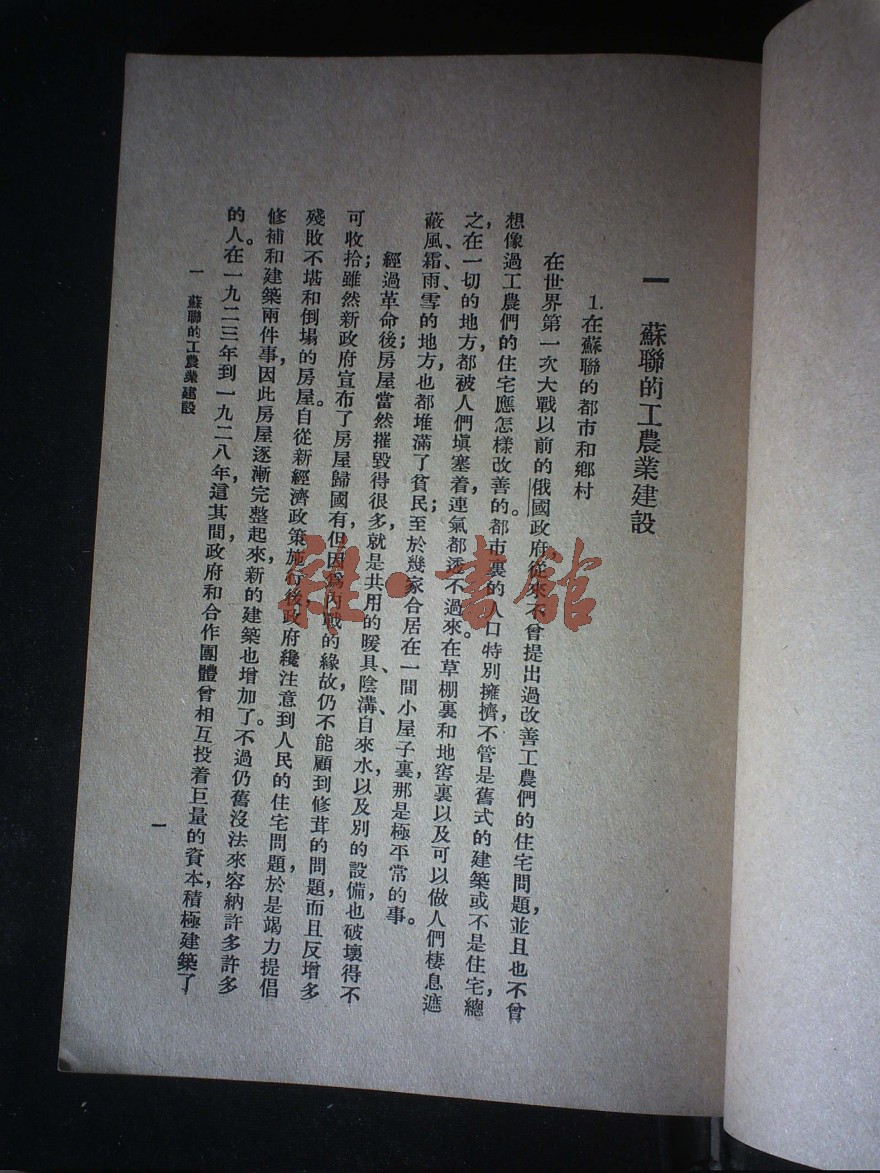 一 蘇聯的工農業建設
1.在蘇聯的都市和鄉村
在世界第一次大戰以前的俄國政府從來不曾提出過改善工農們的住宅問題，並且也不曾
想像過工農們的住宅應怎樣改善的。都市裏的人口特別擁擠，不管是舊式的建築或不是住宅，總
之，在一切的地方，都被人們塡塞着，連氣都透不過來。在草棚裏和地窖裏以及可以做人們棲息遮
蔽風、霜、雨、雪的地方，也都堆滿了貧民；至於幾家合居在一間小屋子裏，那是極平常的事。
經過革命後，房屋當然摧毀得很多，就是共用的暖具、陰溝、自來水，以及別的設備也破壞得不
可收拾；雖然新政府宣布了房屋歸國有，但因爲內戰的緣故，仍不能顧到修葺的問題，而且反增多
殘敗不堪和倒塌的房屋。自從新經濟政策施行後，政府纔注意到人民的住宅問題，於是竭力提倡
修補和建築兩件事，因此房屋逐漸完整起來，新的建築也增加了。不過仍舊沒法來容納許多許多
的人。在一九二三年到一九二八年，這其間政府和合作團體曾相互投着巨量的資本，積極建築了
一 蘇聯的工農業建設
一
雜·書館